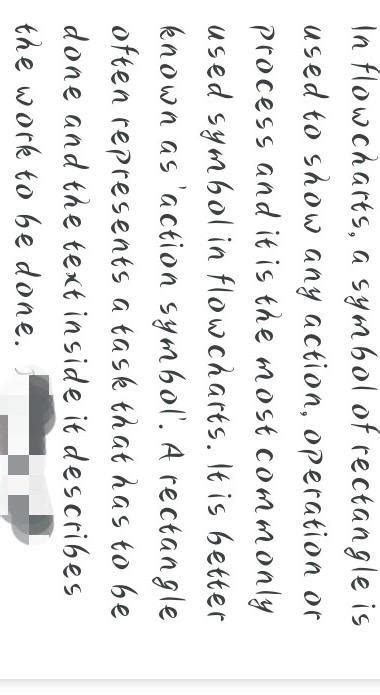 In flowcharts, a symbol of rectangle is
used to show any action, operation or
process and it is the most commonly
used symbol in flowcharts. It is better
known as 'action symbol'. A rectangle
often represents a task that has to be
done and the text inside it describes
the work to be done.